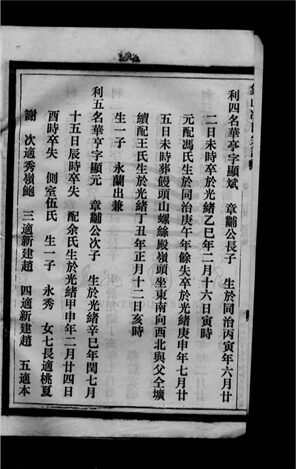 利四名華亭字顯斌　章黼公長子　生於同治丙寅年六月廿
二日未時卒於光緒乙巳年二月十六日寅時
元配馮氏生於同治庚午年餘失卒於光緒庚申年七月廿
五日未時葬饅頭山螺絲殿嶺頭坐東南向西北與父仝壙
續配王氏生於光緒丁丑年正月十二日亥時
生一子　永蘭出兼
利五名華亨字顯元　章黼公次子　生於光緒辛巳年閏七月
十五日辰時卒失　配余氏生於光緒甲申年二月廿四日
酉時卒失　側室伍氏　生一子　永秀　女七長適桃夏
謝　次適秀嶺鮑　三適新建趙　四適新建趙　五適本